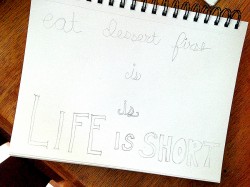 eat dessert first
is
Is
LIFE IS SHORT